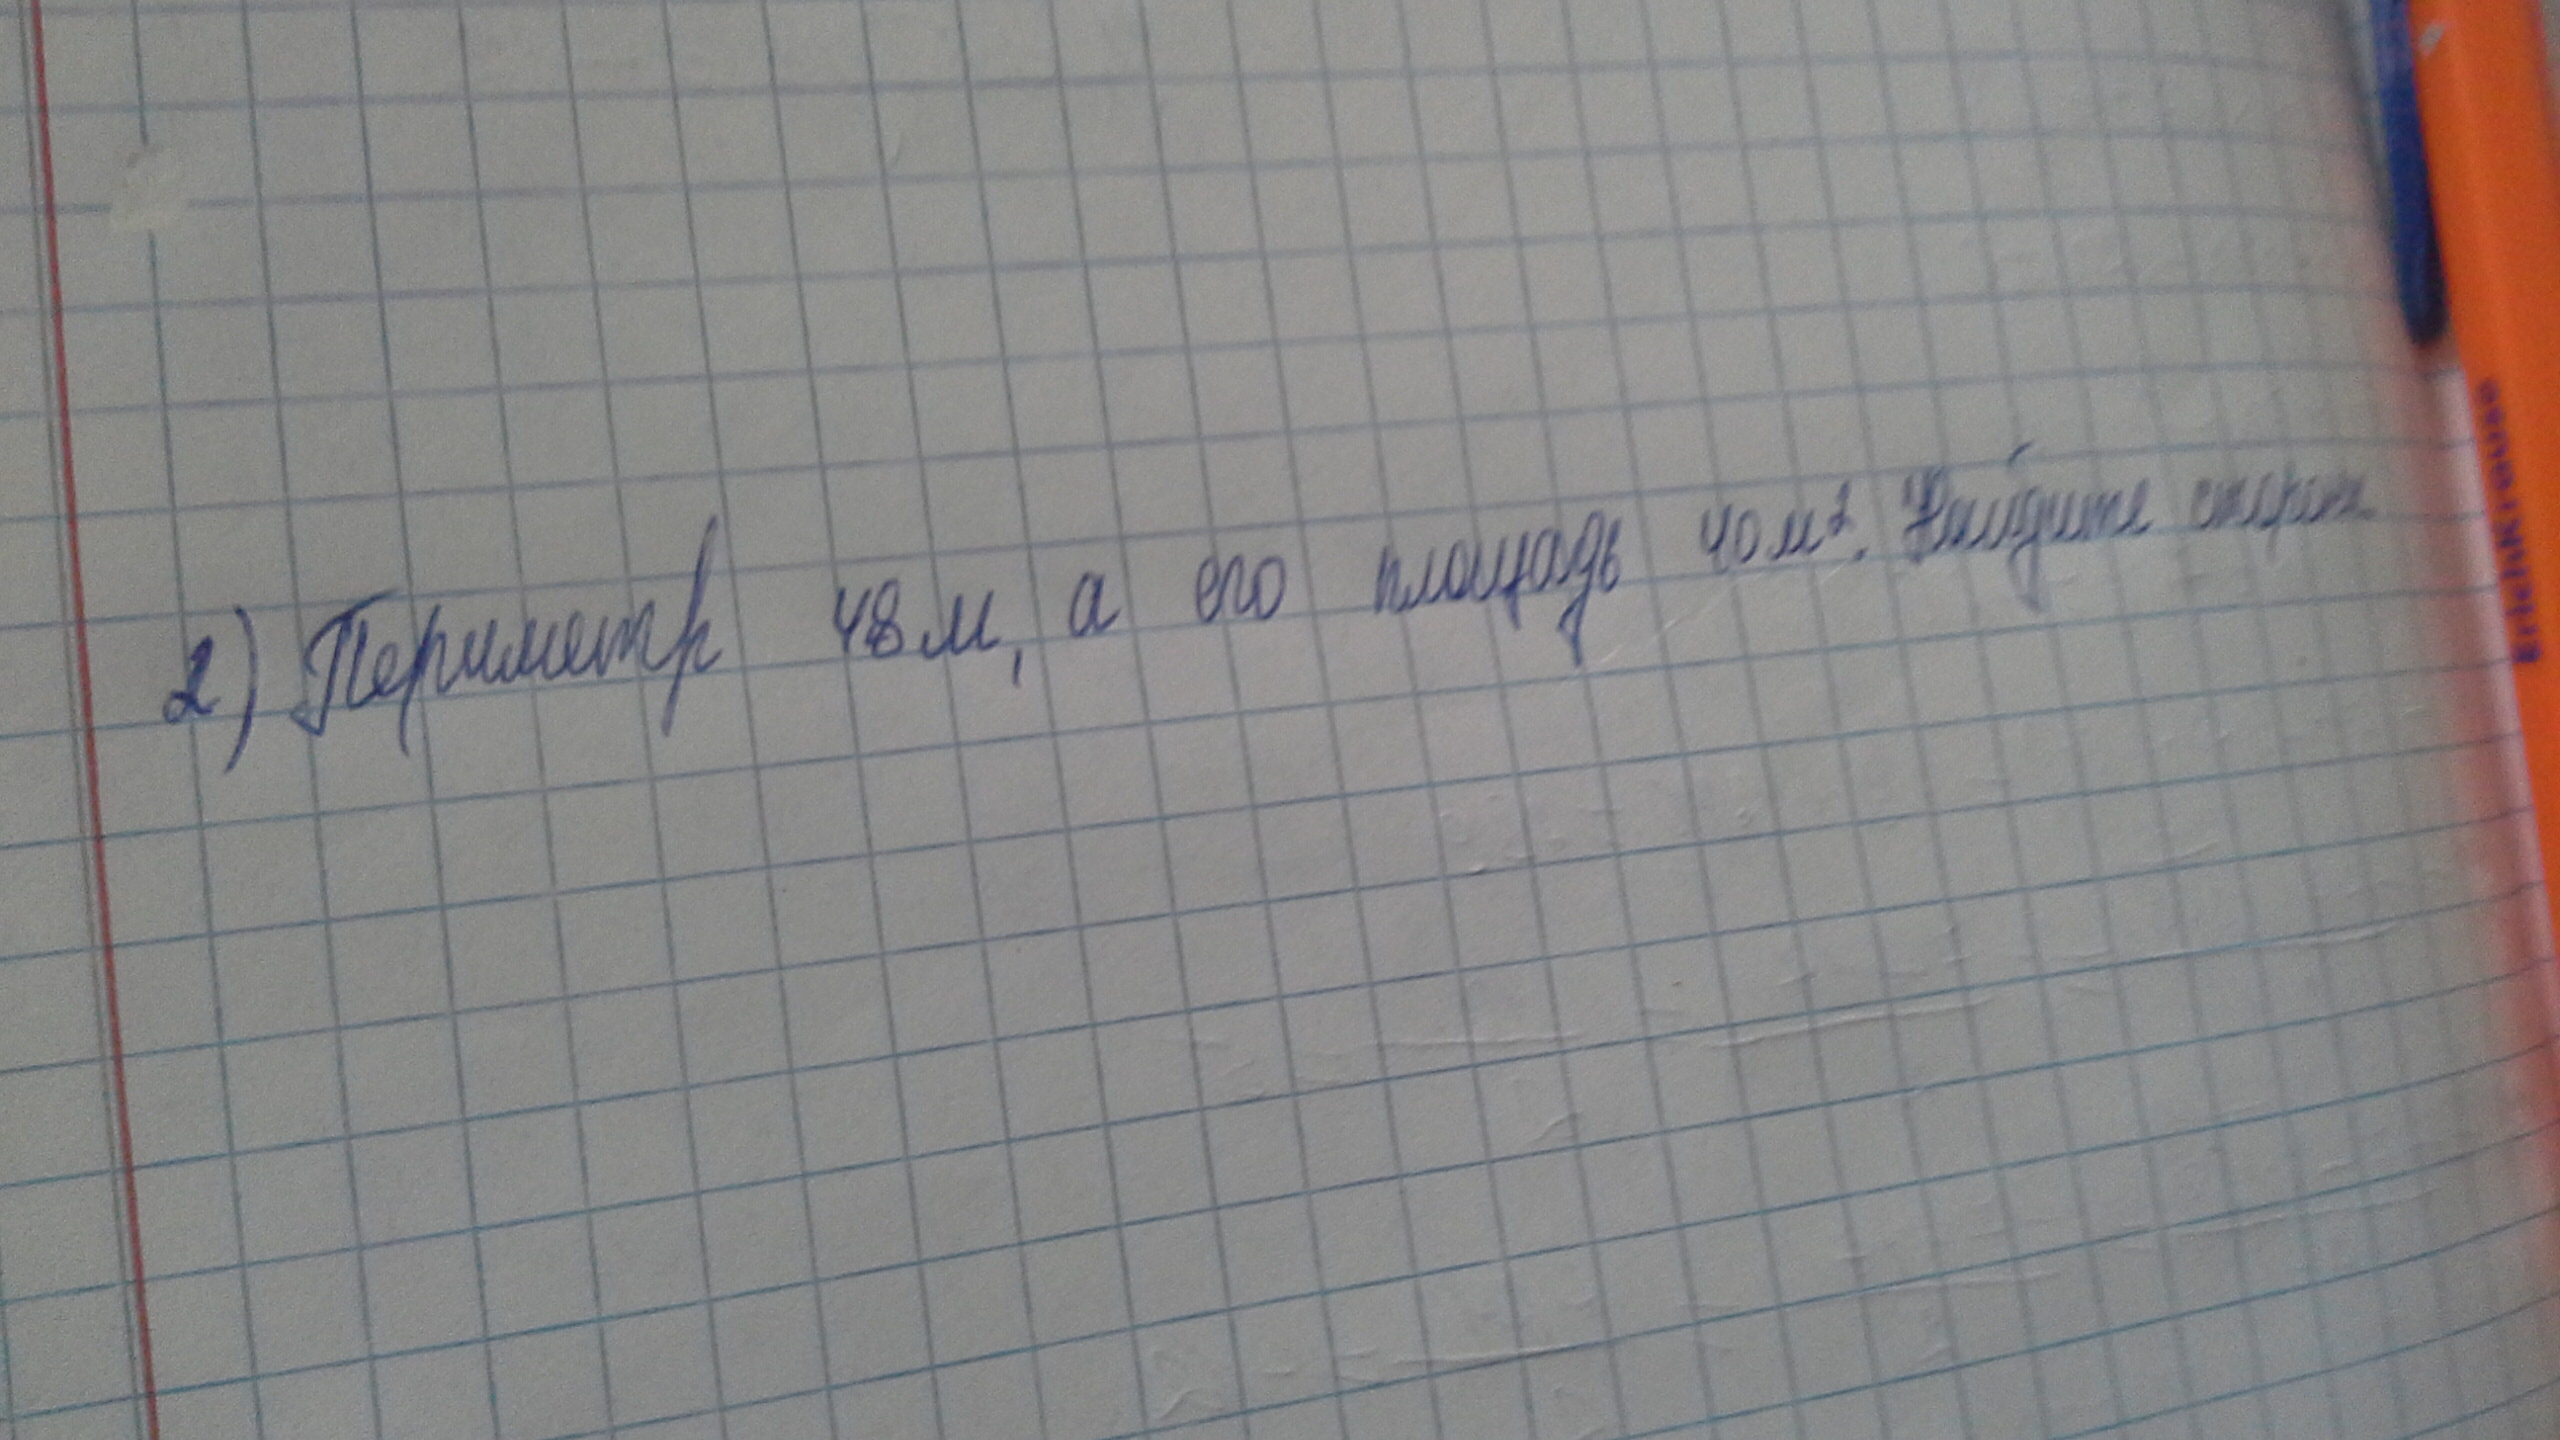 2) Периметр 48 м, а его площадь 40 м². Найдите сторон
ErichKrause